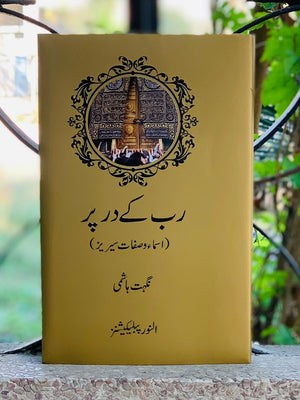 رب کے در پر
(اسماء و صفات سیریز)
نگہت ہاشمی
النور پبلیکیشنز